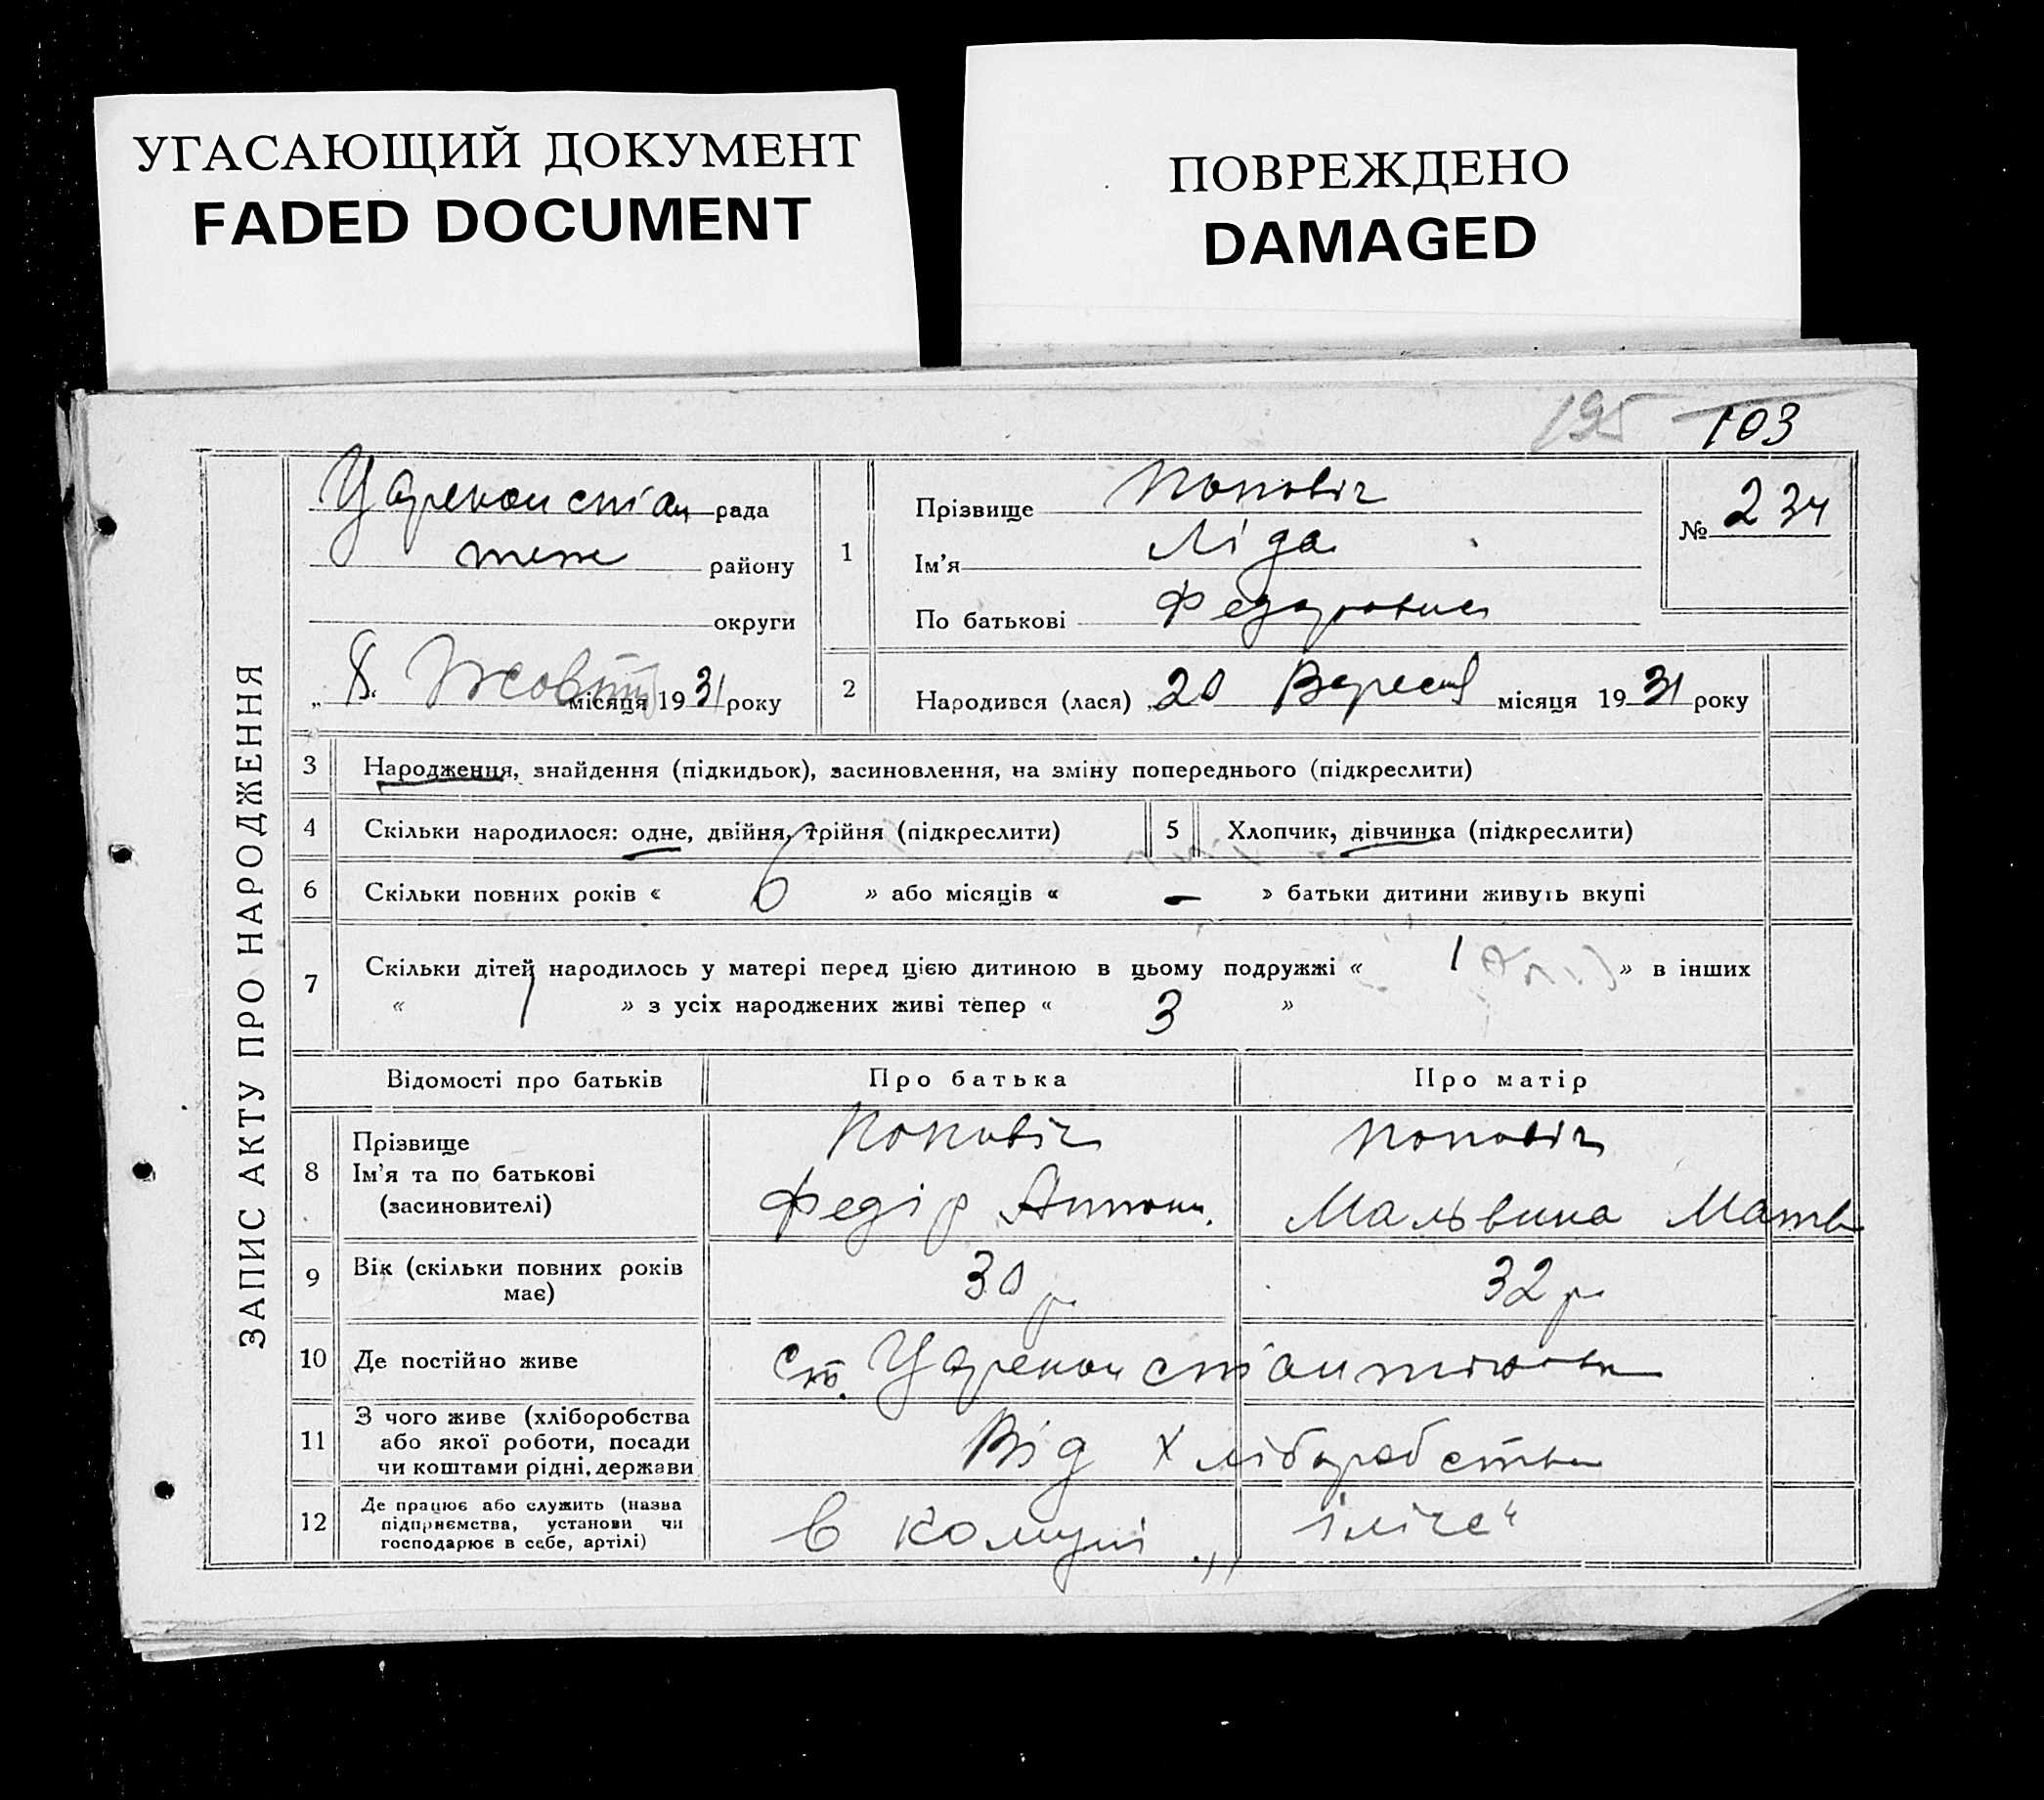 УГАСАЮЩИЙ ДОКУМЕНТ
FADED DOCUMENT
ПОВРЕЖДЕНО
DAMAGED
195 103
ЗАПИС АКТУ ПРО НАРОДЖЕННЯ
Царекон стан рада
теж району
округи
„ 8 “ Жовт місяця 1931 року
1
Прізвище Попович
Ім’я Ліда
По батькові Федоровна
№ 234
2 Народився (лася) „ 20 Вересня місяця 1931 року
3 Народження, знайдення (підкидьок), засиновлення, на зміну попереднього (підкреслити)
4 Скільки народилося: одне, двійня, трійня (підкреслити) 5 Хлопчик, дівчинка (підкреслити)
6 Скільки повних років « 6 » або місяців « – » батьки дитини живуть вкупі
7 Скільки дітей народилось у матері перед цією дитиною в цьому подружжі « 1 » в інших
« 1 » з усіх народжених живі тепер « 3 »
Відомості про батьків Про батька Про матір
8 Прізвище
Ім’я та по батькові
(засиновителі)
Попович
Федір Антон.
Попович
Мальвина Матв
9 Вік (скільки повних років
має)
30 р 32 р
10 Де постійно живе ст. Царекон стантиновка
11 З чого живе (хліборобства
або якої роботи, посади
чи коштами рідні, держави
Від хліборобства
12 Де працює або служить (назва
підприємства, установи чи
господарює в себе, артілі)
в комуні „ Іліча“